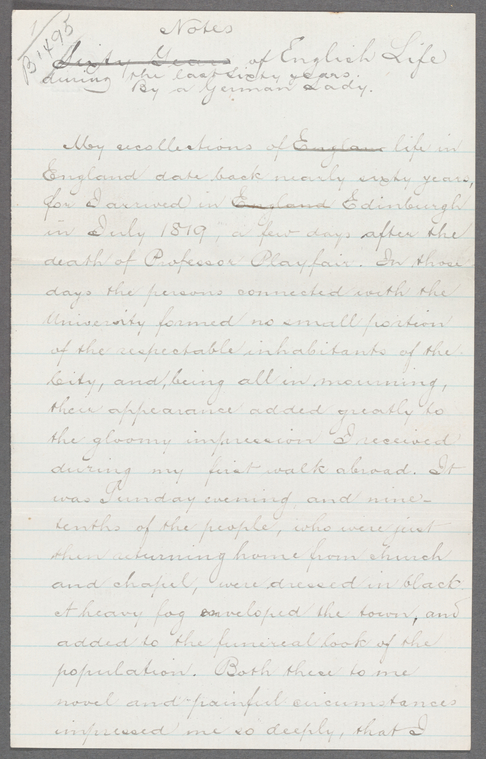 1/
B'495
Notes
Sixty Years of English Life
during the last sixty years
By a German Lady.
My recollections of Englan life in
England date back nearly sixty years,
for I arrived in England Edinburgh
in July 1819, a few days after the
death of Professor Playfair. In those
days the persons connected with the
University formed no small portion
of the respectable inhabitants of the
City, and, being all in mourning,
their appearance added greatly to
the gloomy impression I received
during my first walk abroad. It
was Sunday evening, and nine-
tenths of the people, who were just
then returning home from church
and chapel, were dressed in black.
A heavy fog enveloped the town, and
added to the funereal look of the
population. Both these to me
novel and painful circumstances
impressed me so deeply, that I